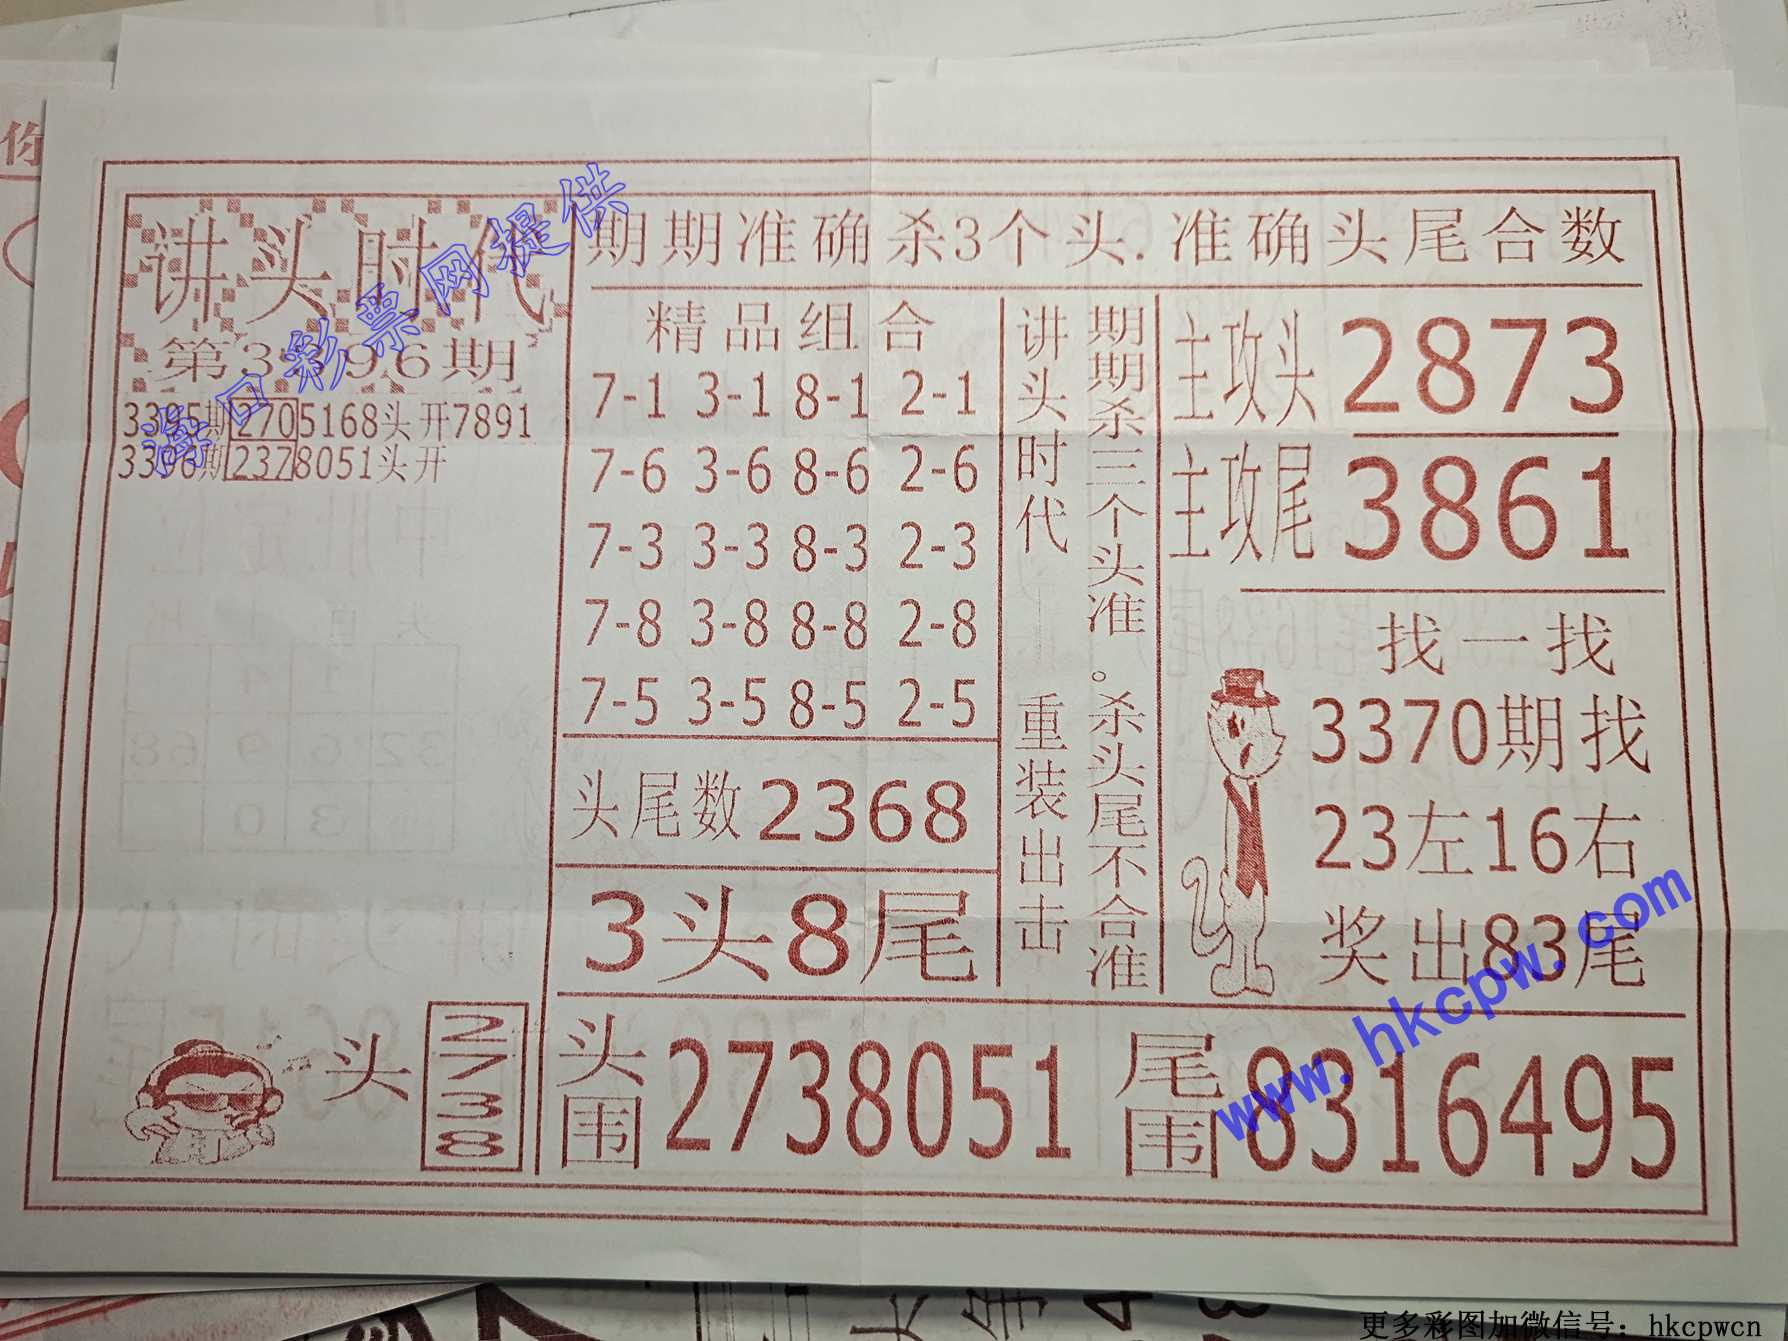 讲头时代
第3396期
3395期2705168头开7891
3396期2378051头开
头
2738
期期准确杀3个头.准确头尾合数
精品组合
7-1 3-1 8-1 2-1
7-6 3-6 8-6 2-6
7-3 3-3 8-3 2-3
7-8 3-8 8-8 2-8
7-5 3-5 8-5 2-5
头尾数2368
3头8尾
讲头时代 重装出击
期期杀三个头准。杀头尾不合准
主攻头2873
主攻尾3861
找一找
3370期找
23左16右
奖出83尾
头围2738051
尾围8316495
海口彩票网提供
www.hkcpw.com
更多彩图加微信号：hkcpwcn